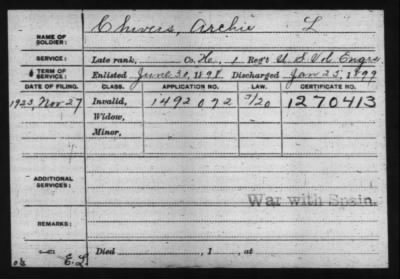 NAME OF SOLDIER: Chivers, Archie L
SERVICE: Late rank, Co. H, 1 Reg't U.S. Vol. Engrs
TERM OF SERVICE: Enlisted June 30, 1898. Discharged Jan 25, 1899
DATE OF FILING. CLASS. APPLICATION NO. LAW. CERTIFICATE NO.
1923, Nov 27 Invalid, 1492072 3/20 1270413
Widow,
Minor,
ADDITIONAL SERVICES:
War with Spain.
REMARKS:
E.L.
Died , 1 , at